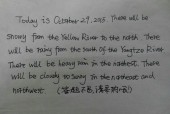 Today is October 29, 2015. There will be
snowy from the Yellow River to the north. There
will be rainy from the south of the Yangtze River.
There will be heavy rain in the northest. There
will be cloudy to sunny in the northeast and
northwest. (